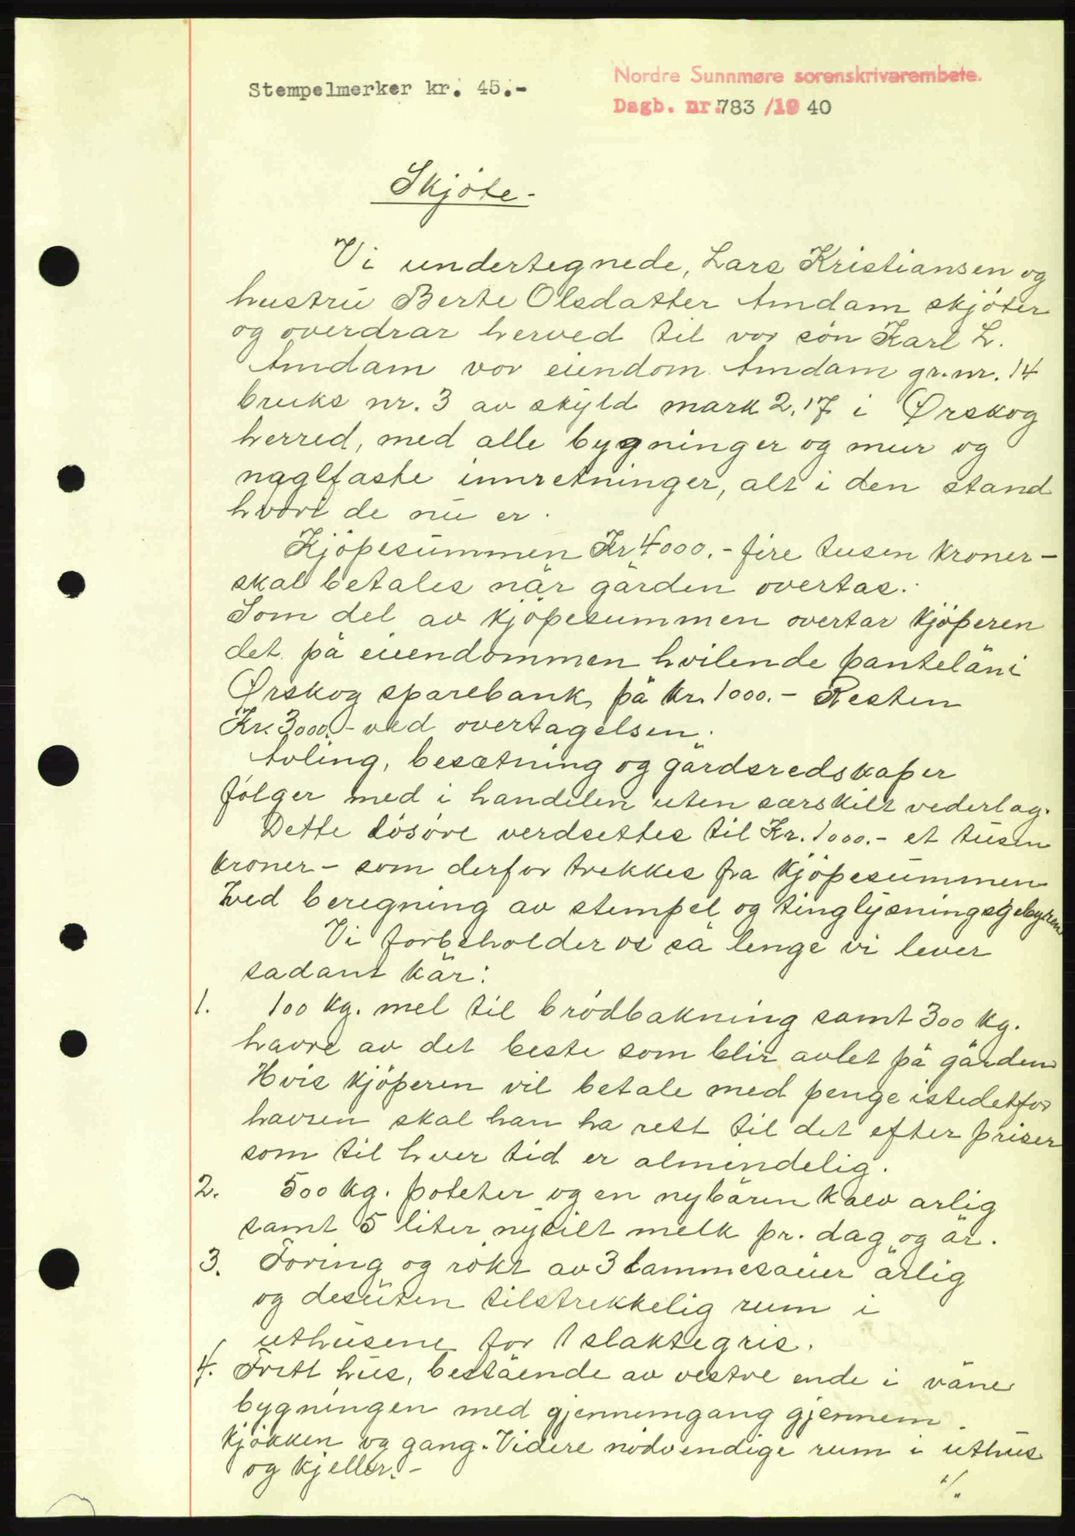 Stempelmerker kr. 45.-
Nordre Sunnmøre sorenskrivarembete.
Dagb. nr. 783 /19 40
Skjøte.-
Vi undertegnede, Lars Kristiansen og
hustru Berte Olsdatter Amdam skjøter
og overdrar herved til vor søn Karl L.
Amdam vor eiendom Amdam gr.nr. 14
bruks nr. 3 av skyld mark 2.17 i Ørskog
herred, med alle bygninger og mur og
naglfaste innretninger, alt i den stand
hvori de nu er.
Kjøpesummen Kr 4000.- fire tusen kroner-
skal betales når gården overtas.
Som del av kjøpesummen overtar kjøperen
det på eiendommen hvilende pantelån i
Ørskog sparebank, på kr. 1000.- Resten
Kr. 3000.- ved overtagelsen.
Avling, besætning og gårdsredskaper
følger med i handelen uten særskilt vederlag.
Dette løsøre verdsettes til Kr. 1000.- et tusen
kroner- som derfor trekkes fra kjøpesummen
ved beregning av stempel og tinglysningsgebyren
Vi forbeholder os så lenge vi lever
sadant kår:
1. 100 kg. mel til brødbakning samt 300 kg.
havre av det beste som blir avlet på gården
Hvis kjøperen vil betale med penge istedetfor
havren skal han ha rett til det efter priser
som til hver tid er almindelig.
2. 500 kg. poteter og en nybåren kalv årlig
samt 5 liter nysilt melk pr. dag og år.
3. Foring og røkt av 3 lammesauer årlig
og desuten tilstrekkelig rum i
uthusene for 1 slaktegris.
4. Fritt hus, bestående av vestre ende i våne
bygningen med gjennemgang gjennem
kjøkken og gang. Videre nødvendige rum i uthus
og kjeller.-
·/.